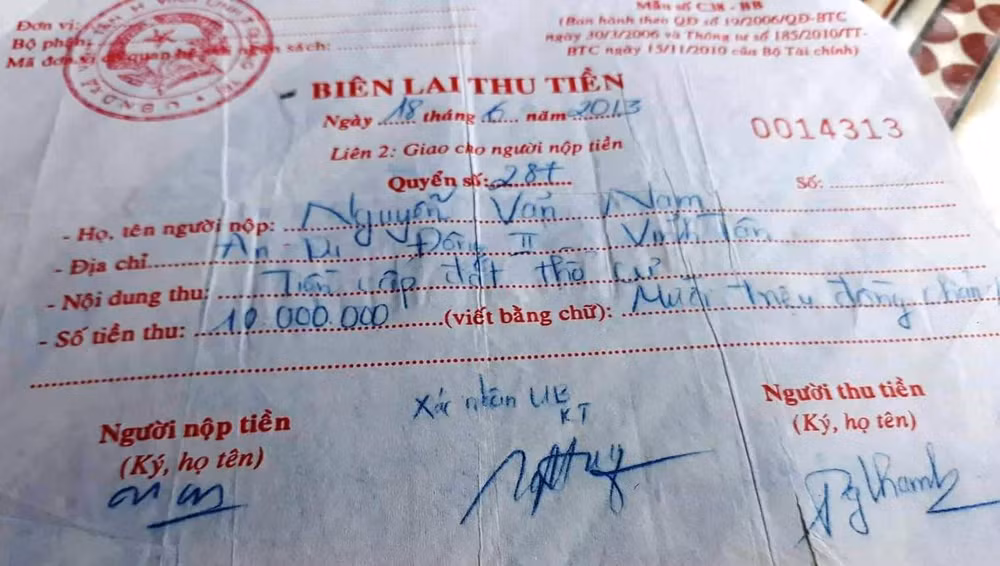 Mẫu số C38 - BB
Đơn vị:
(Ban hành theo QĐ số 19/2006/QĐ-BTC
Bộ phận:
ngày 30/3/2006 và Thông tư số 185/2010/TT-
Mã đơn vị có quan hệ với ngân sách:
BTC ngày 15/11/2010 của Bộ Tài chính)
BIÊN LAI THU TIỀN
Ngày 18 tháng 6 năm 2013
0014313
Liên 2: Giao cho người nộp tiền
Quyển số: 287
Số:
- Họ, tên người nộp: Nguyễn Văn Nam
- Địa chỉ An Di Đông II Vĩnh Tân
- Nội dung thu: Tiền cấp đất thổ cư
- Số tiền thu: 10.000.000 (viết bằng chữ): Mười triệu đồng chẵn
Xác nhận UB
KT
Người nộp tiền
(Ký, họ tên)
Người thu tiền
(Ký, họ tên)